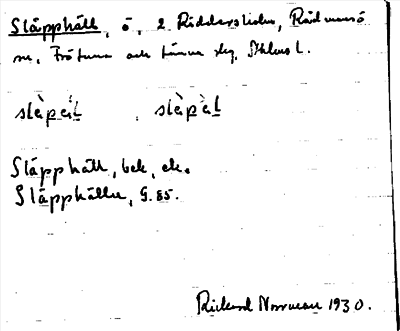 Släpphäll, ö, 2. Riddersholm, Rådmansö
sn, Frötuna och Länna slg, Sthlms l.
slèpɛ̀l, slèpèl
Släpphäll, bek, ek.
Släpphällen, G. 85.
Rickard Norrman 1930.